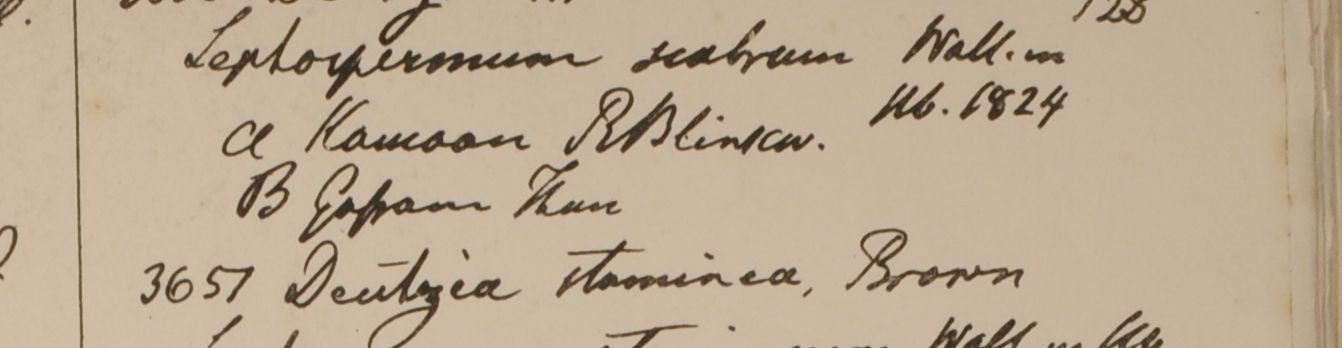 128
Leptospermum scabrum Wall. in
Hb. 1824
a Kamaon RBlinkw.
B Gossam Than
3651 Deutzia staminea, Brown
Wall in Hb